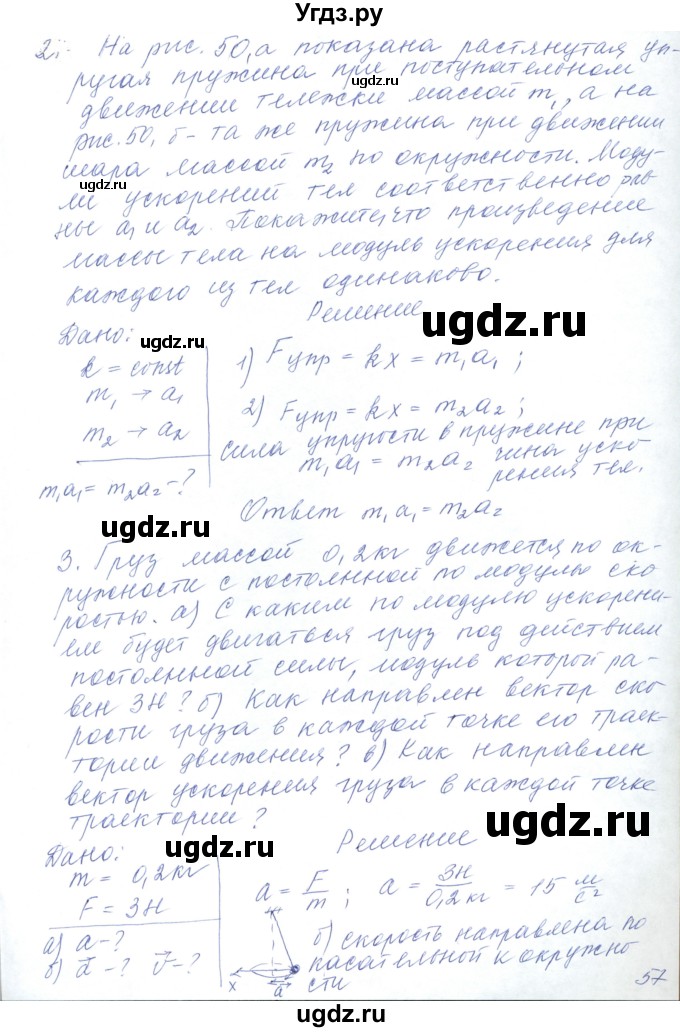 Угдз.ру
2. На рис. 50, а показана растянутая уп-
ругая пружина при поступательном
движении тележки массой m₁, а на
рис. 50, б – та же пружина при движении
шара массой m₂ по окружности. Моду-
ugdz.ru
ли ускорений тел соответственно рав-
ны a₁ и a₂. Покажите, что произведение
ugdz.ru
массы тела на модуль ускорения для
каждого из тел одинаково.
Решение
ugdz.ru
Дано:
ugdz.ru
k = const
m₁ → a₁
m₂ → a₂
m₁a₁ = m₂a₂ - ?
1) Fупр = kx = m₁a₁ ;
2) Fупр = kx = m₂a₂ ;
сила упругости в пружине при
m₁a₁ = m₂a₂ чина уско-
рения тел.
Ответ m₁a₁ = m₂a₂
ugdz.ru
ugdz.ru
3. Груз массой 0,2кг движется по ок-
ружности с постоянной по модулю ско-
ростью. а) С каким по модулю ускорени-
ugdz.ru
ем будет двигаться груз под действием
постоянной силы, модуль которой ра-
вен 3Н? б) Как направлен вектор ско-
рости груза в каждой точке его траек-
ugdz.ru
тории движения? в) Как направлен
вектор ускорения груза в каждой точке
ugdz.ru
траектории?
Решение
ugdz.ru
Дано:
m = 0,2кг
F = 3Н
а) a - ?
в) a⃗ - ? v⃗ - ?
a = F/m ; a = 3Н/0,2кг = 15 м/с²
б) скорость направлена по
касательной к окружно
сти
x
a⃗
ugdz.ru
57
ugdz.ru